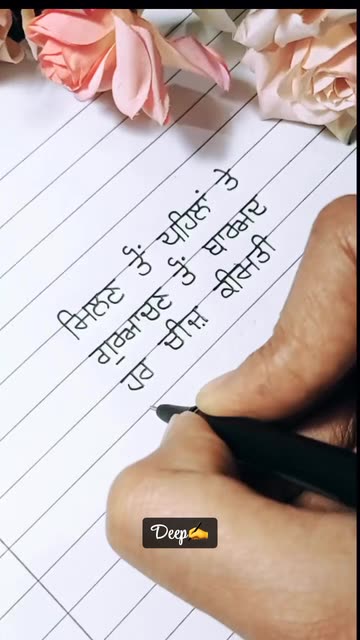 ਮਿਲਣ ਤੋਂ ਪਹਿਲਾਂ ਤੇ
ਗੁਆਚਣ ਤੋਂ ਬਾਅਦ
ਹਰ ਚੀਜ਼ ਕੀਮਤੀ
Deep✍️